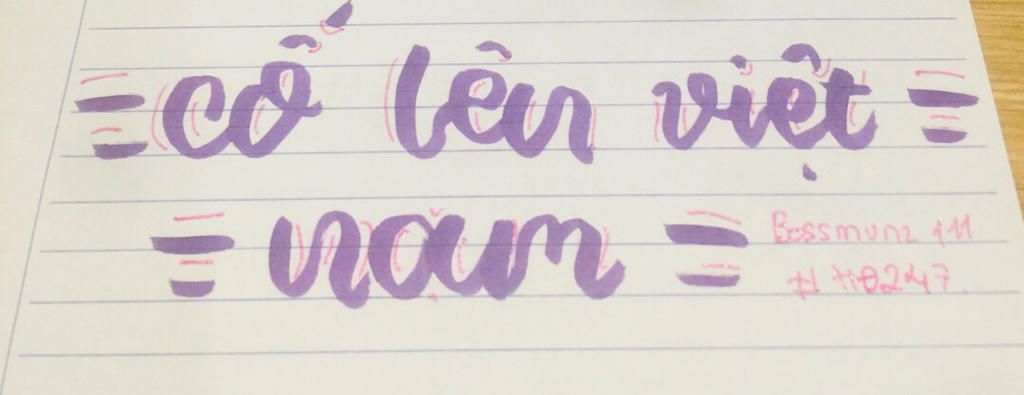 cố lên việt
nam
Bossmunz 111
# HB247